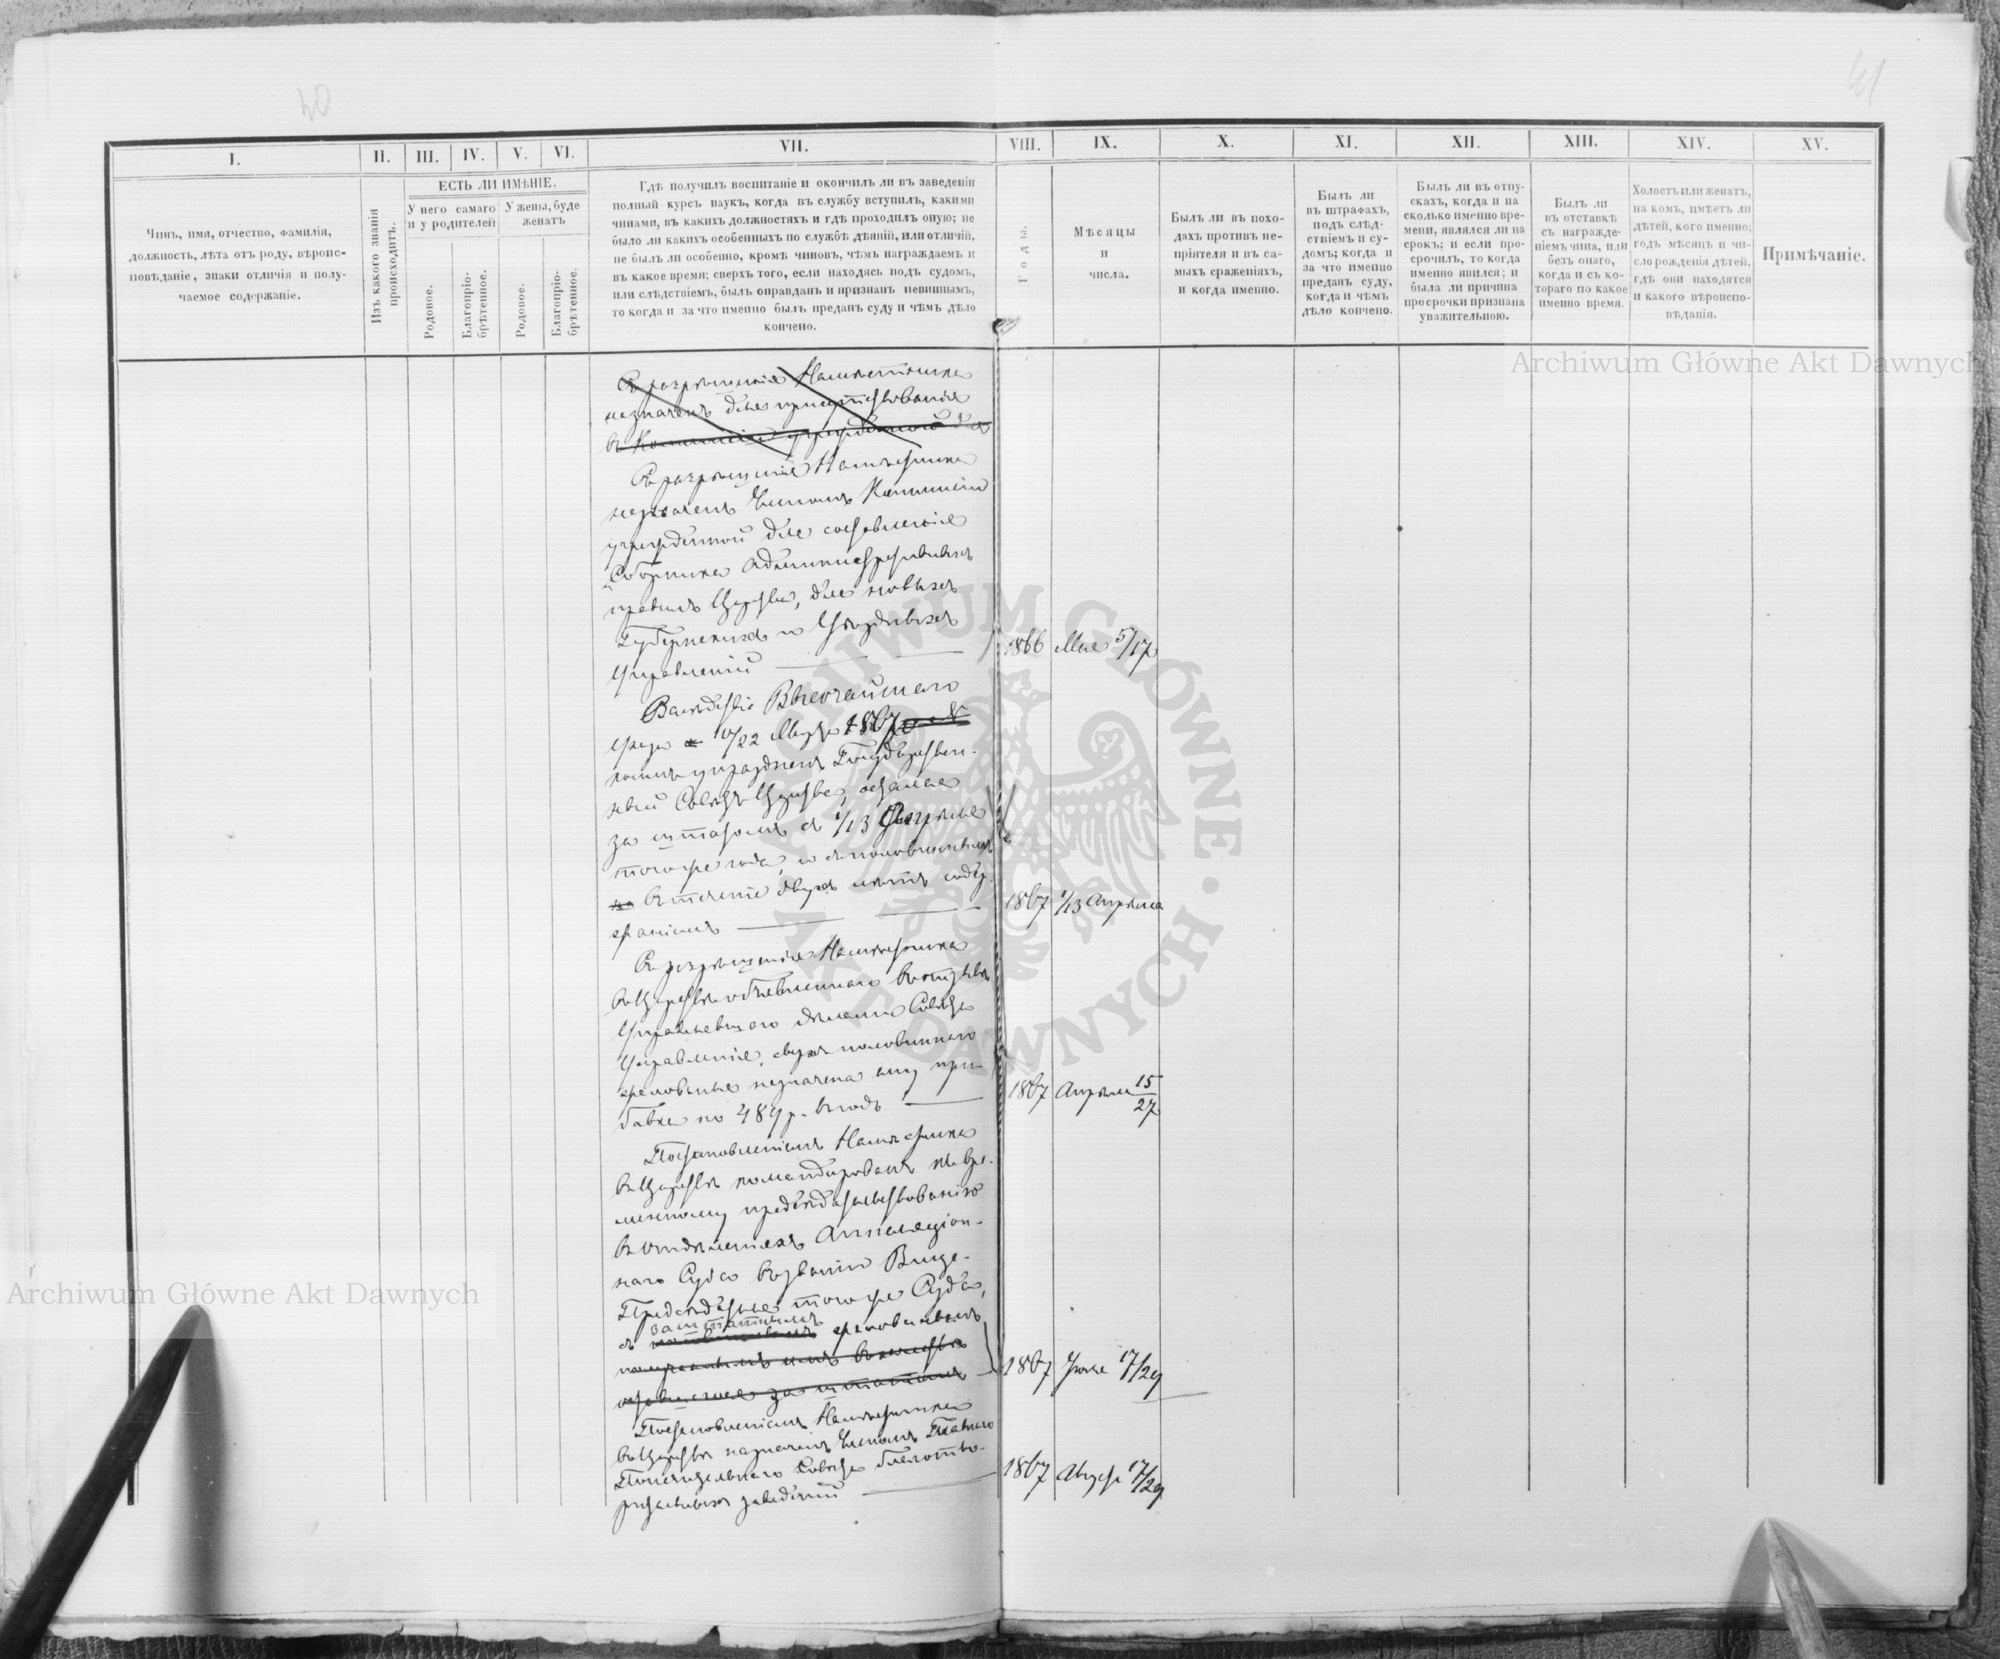 40
41
I.
II.
III.
IV.
V.
VI.
VII.
VIII.
IX.
X.
XI.
XII.
XIII.
XIV.
XV.
Чинъ, имя, отчество, фамилія,
должность, лѣта отъ роду, вѣроис-
повѣданіе, знаки отличія и полу-
чаемое содержаніе.
Изъ какого званія
происходитъ.
ЕСТЬ ЛИ ИМѢНІЕ.
У него самаго
и у родителей
У жены, буде
женатъ
Родовое.
Благопріо-
брѣтенное.
Родовое.
Благопріо-
брѣтенное.
Гдѣ получилъ воспитаніе и окончилъ ли въ заведеніи
полный курсъ наукъ, когда въ службу вступилъ, какими
чинами, въ какихъ должностяхъ и гдѣ проходилъ оную; не
было ли какихъ особенныхъ по службѣ дѣяній, или отличій,
не былъ ли особенно, кромѣ чиновъ, чѣмъ награждаемъ и
въ какое время; сверхъ того, если находясь подъ судомъ,
или слѣдствіемъ, былъ оправданъ и признанъ невиннымъ,
то когда и за что именно былъ преданъ суду и чѣмъ дѣло
кончено.
Годы.
Мѣсяцы
и
числа.
Былъ ли въ похо-
дахъ противъ не-
пріятеля и въ са-
мыхъ сраженіяхъ,
и когда именно.
Былъ ли
въ штрафахъ,
подъ слѣд-
ствіемъ и су-
домъ; когда и
за что именно
преданъ суду,
когда и чѣмъ
дѣло кончено.
Былъ ли въ отпу-
скахъ, когда и на
сколько именно вре-
мени, являлся ли на
срокъ; и если про-
срочилъ, то когда
именно явился; и
была ли причина
просрочки признана
уважительною.
Былъ ли
въ отставкѣ
съ награжде-
ніемъ чина, или
безъ онаго,
когда и съ ко-
тораго по какое
именно время.
Холостъ или женатъ,
на комъ, имѣетъ ли
дѣтей, кого именно;
годъ мѣсяцъ и чи-
сло рожденія дѣтей,
гдѣ они находятся
и какого вѣроиспо-
вѣданія.
Примѣчаніе.
Съ разрѣшенія Намѣстника
назначенъ для присутствованія
въ Коммиссіи учрежденной для
Съ разрѣшенія Намѣстника
назначенъ Членомъ Коммисіи
учрежденной для составленія
Сборника Административныхъ
правилъ Царства, для новыхъ
Губернскихъ и Уѣздныхъ
Управленій
1866 Мая 5/17
Вслѣдствіе Высочайшаго
Указа 10/22 Марта 1867
коимъ упраздненъ Государствен-
ный Совѣтъ Царства, остался
за штатомъ съ 1/13 Апрѣля
того же года, и съ половиннымъ
въ теченіе двухъ лѣтъ содер-
жаніемъ
1867 1/13 Апрѣля
Съ разрѣшенія Намѣстника
въ Царствѣ объявленнаго въ отзывѣ
Управляющаго дѣлами Совѣта
Управленія, сверхъ половиннаго
жалованья назначена ему при-
бавка по 489 р. въ годъ
1867 Апрѣля 15/27
Постановленіемъ Намѣстника
въ Царствѣ командированъ къ вре-
менному предсѣдательствованію
въ Отдѣленіяхъ Аппеляціон-
наго Суда въ званіи Вице-
Предсѣдателя того же Суда,
заштатнымъ
съ жалованьемъ
получаемымъ имъ въ качествѣ
оставшагося за штатомъ
1867 Іюня 17/29
Постановленіемъ Намѣстника
въ Царствѣ назначенъ Членомъ Главнаго
Попечительнаго Совѣта благотво-
рительныхъ заведеній
1867 Августа 17/29
Archiwum Główne Akt Dawnych
Archiwum Główne Akt Dawnych
ARCHIWUM GŁÓWNE AKT DAWNYCH